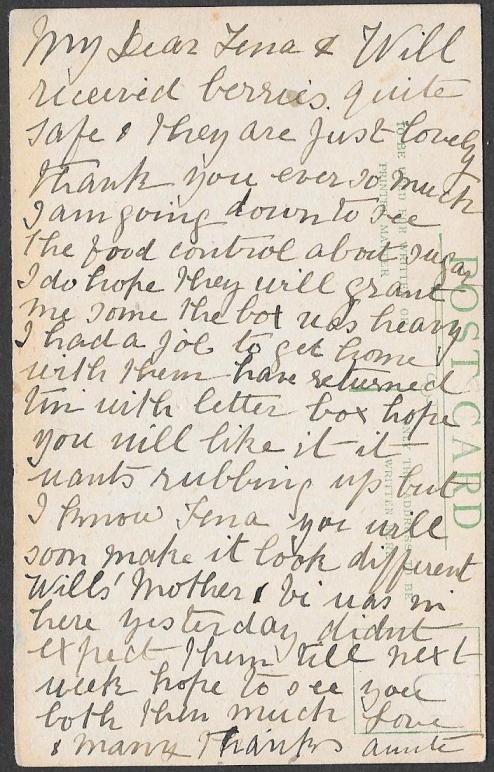 My Dear Tena & Will
received berries quite
safe & they are just lovely
thank you ever so much
I am going down to see
the food control about sugar
I do hope they will grant
me some the box was heavy
I had a job to get home
with them have returned
tin with letter box hope
you will like it it
wants rubbing up but
I know Tena you will
soon make it look different
Wills' Mother & Vi was in
here yesterday didnt
expect them till next
week hope to see you
both then much love
& many thanks aunte
POST CARD